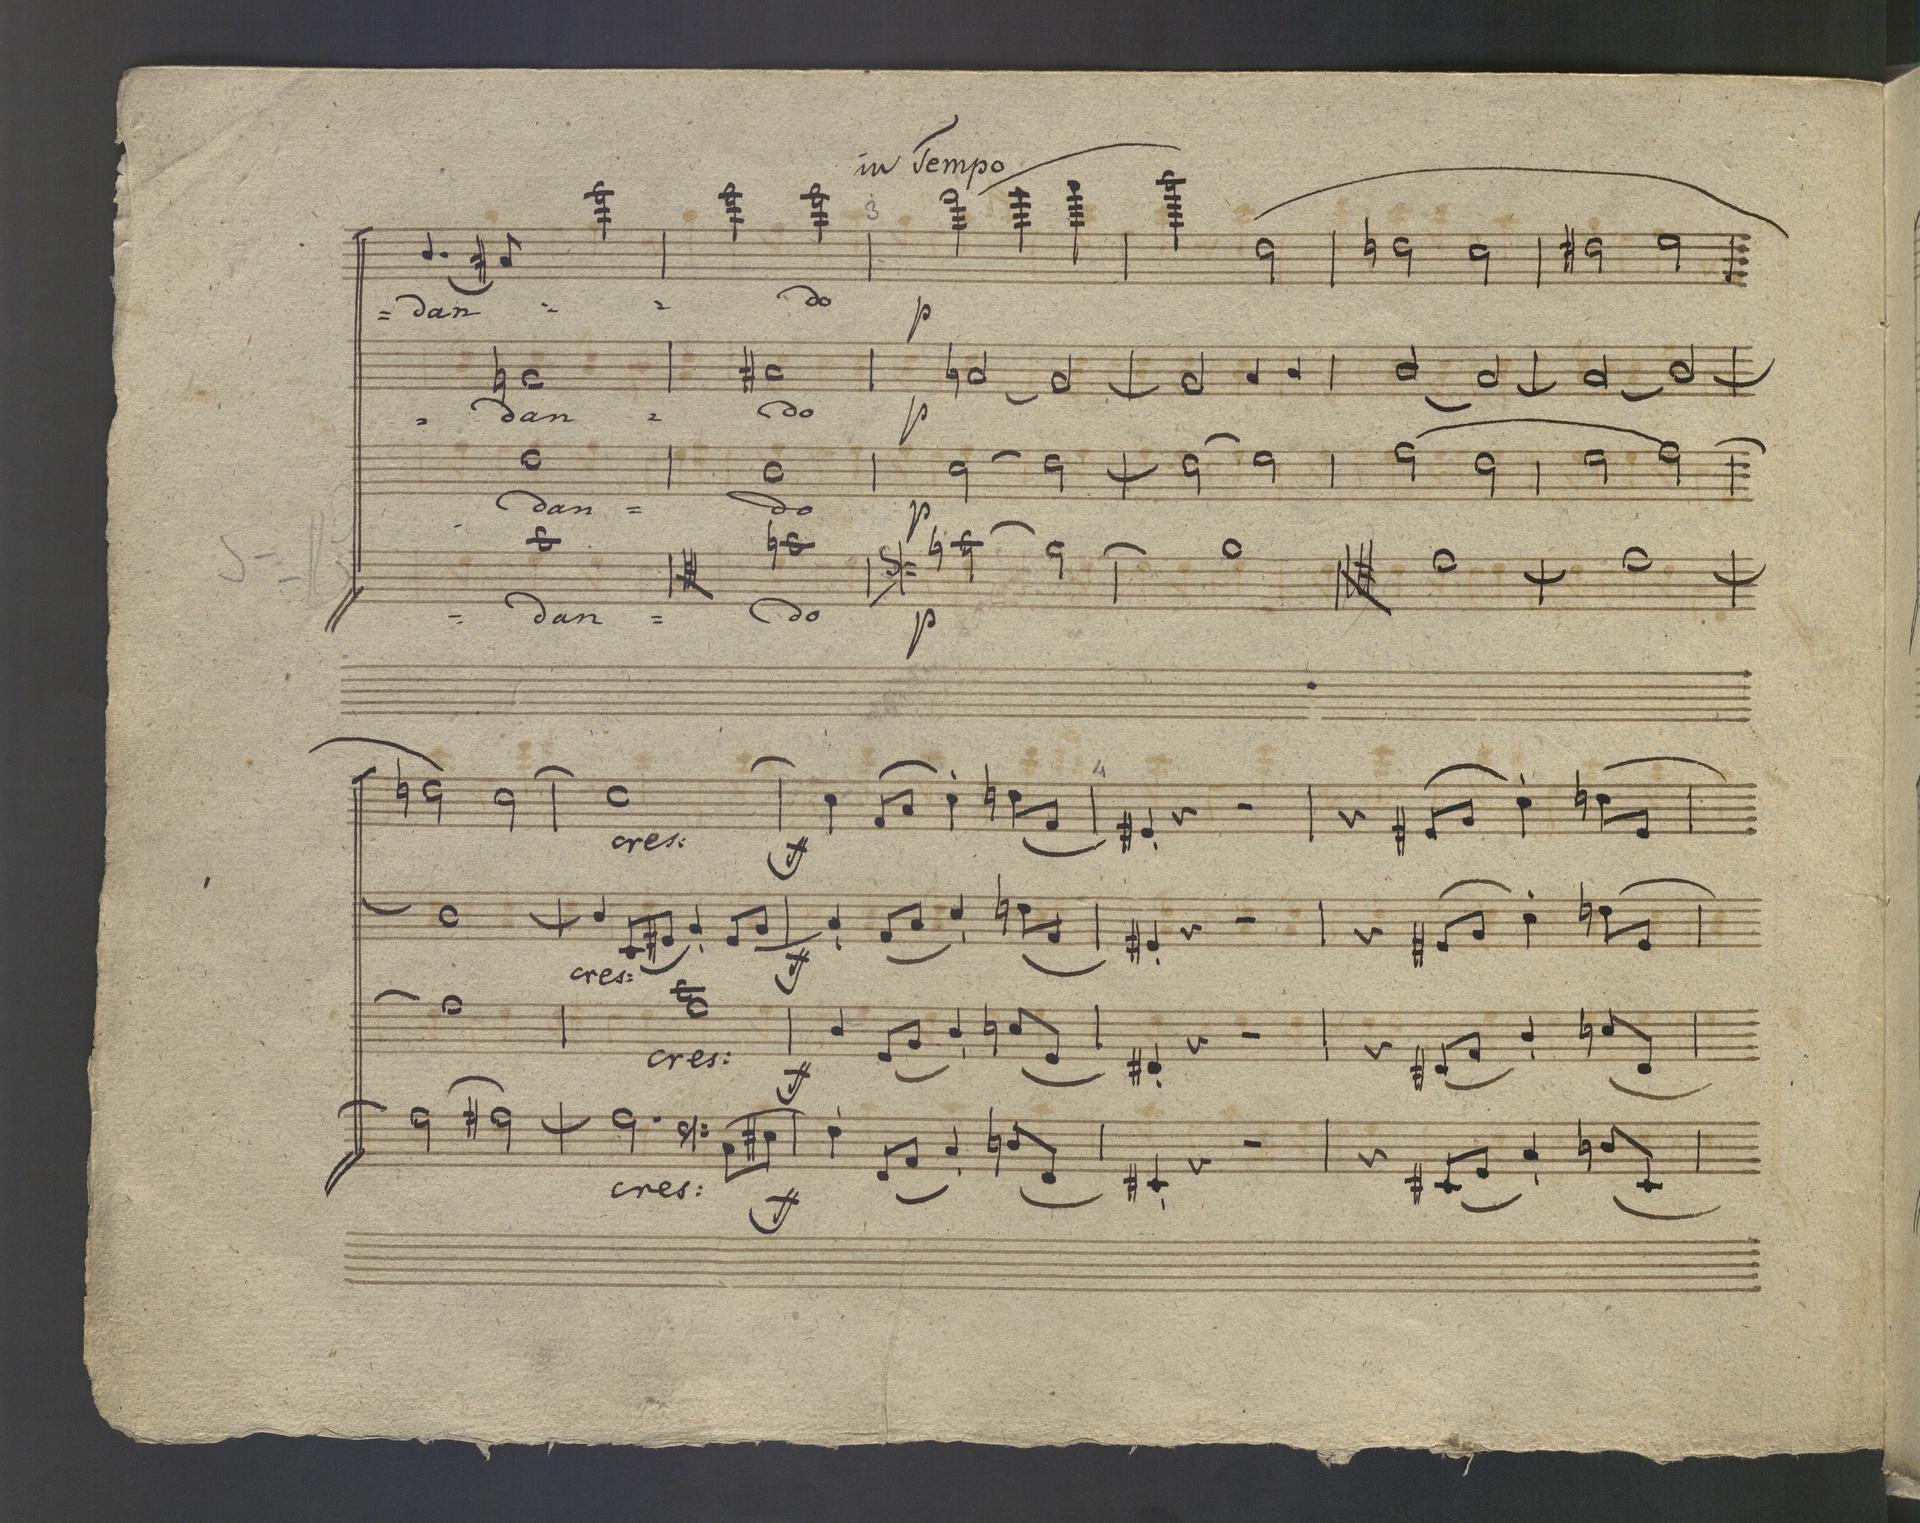 in Tempo
3
= dan - = do p
= dan = do p
dan = do p
= dan = do p
4
cres: f
cres: f
cres: f
cres: f